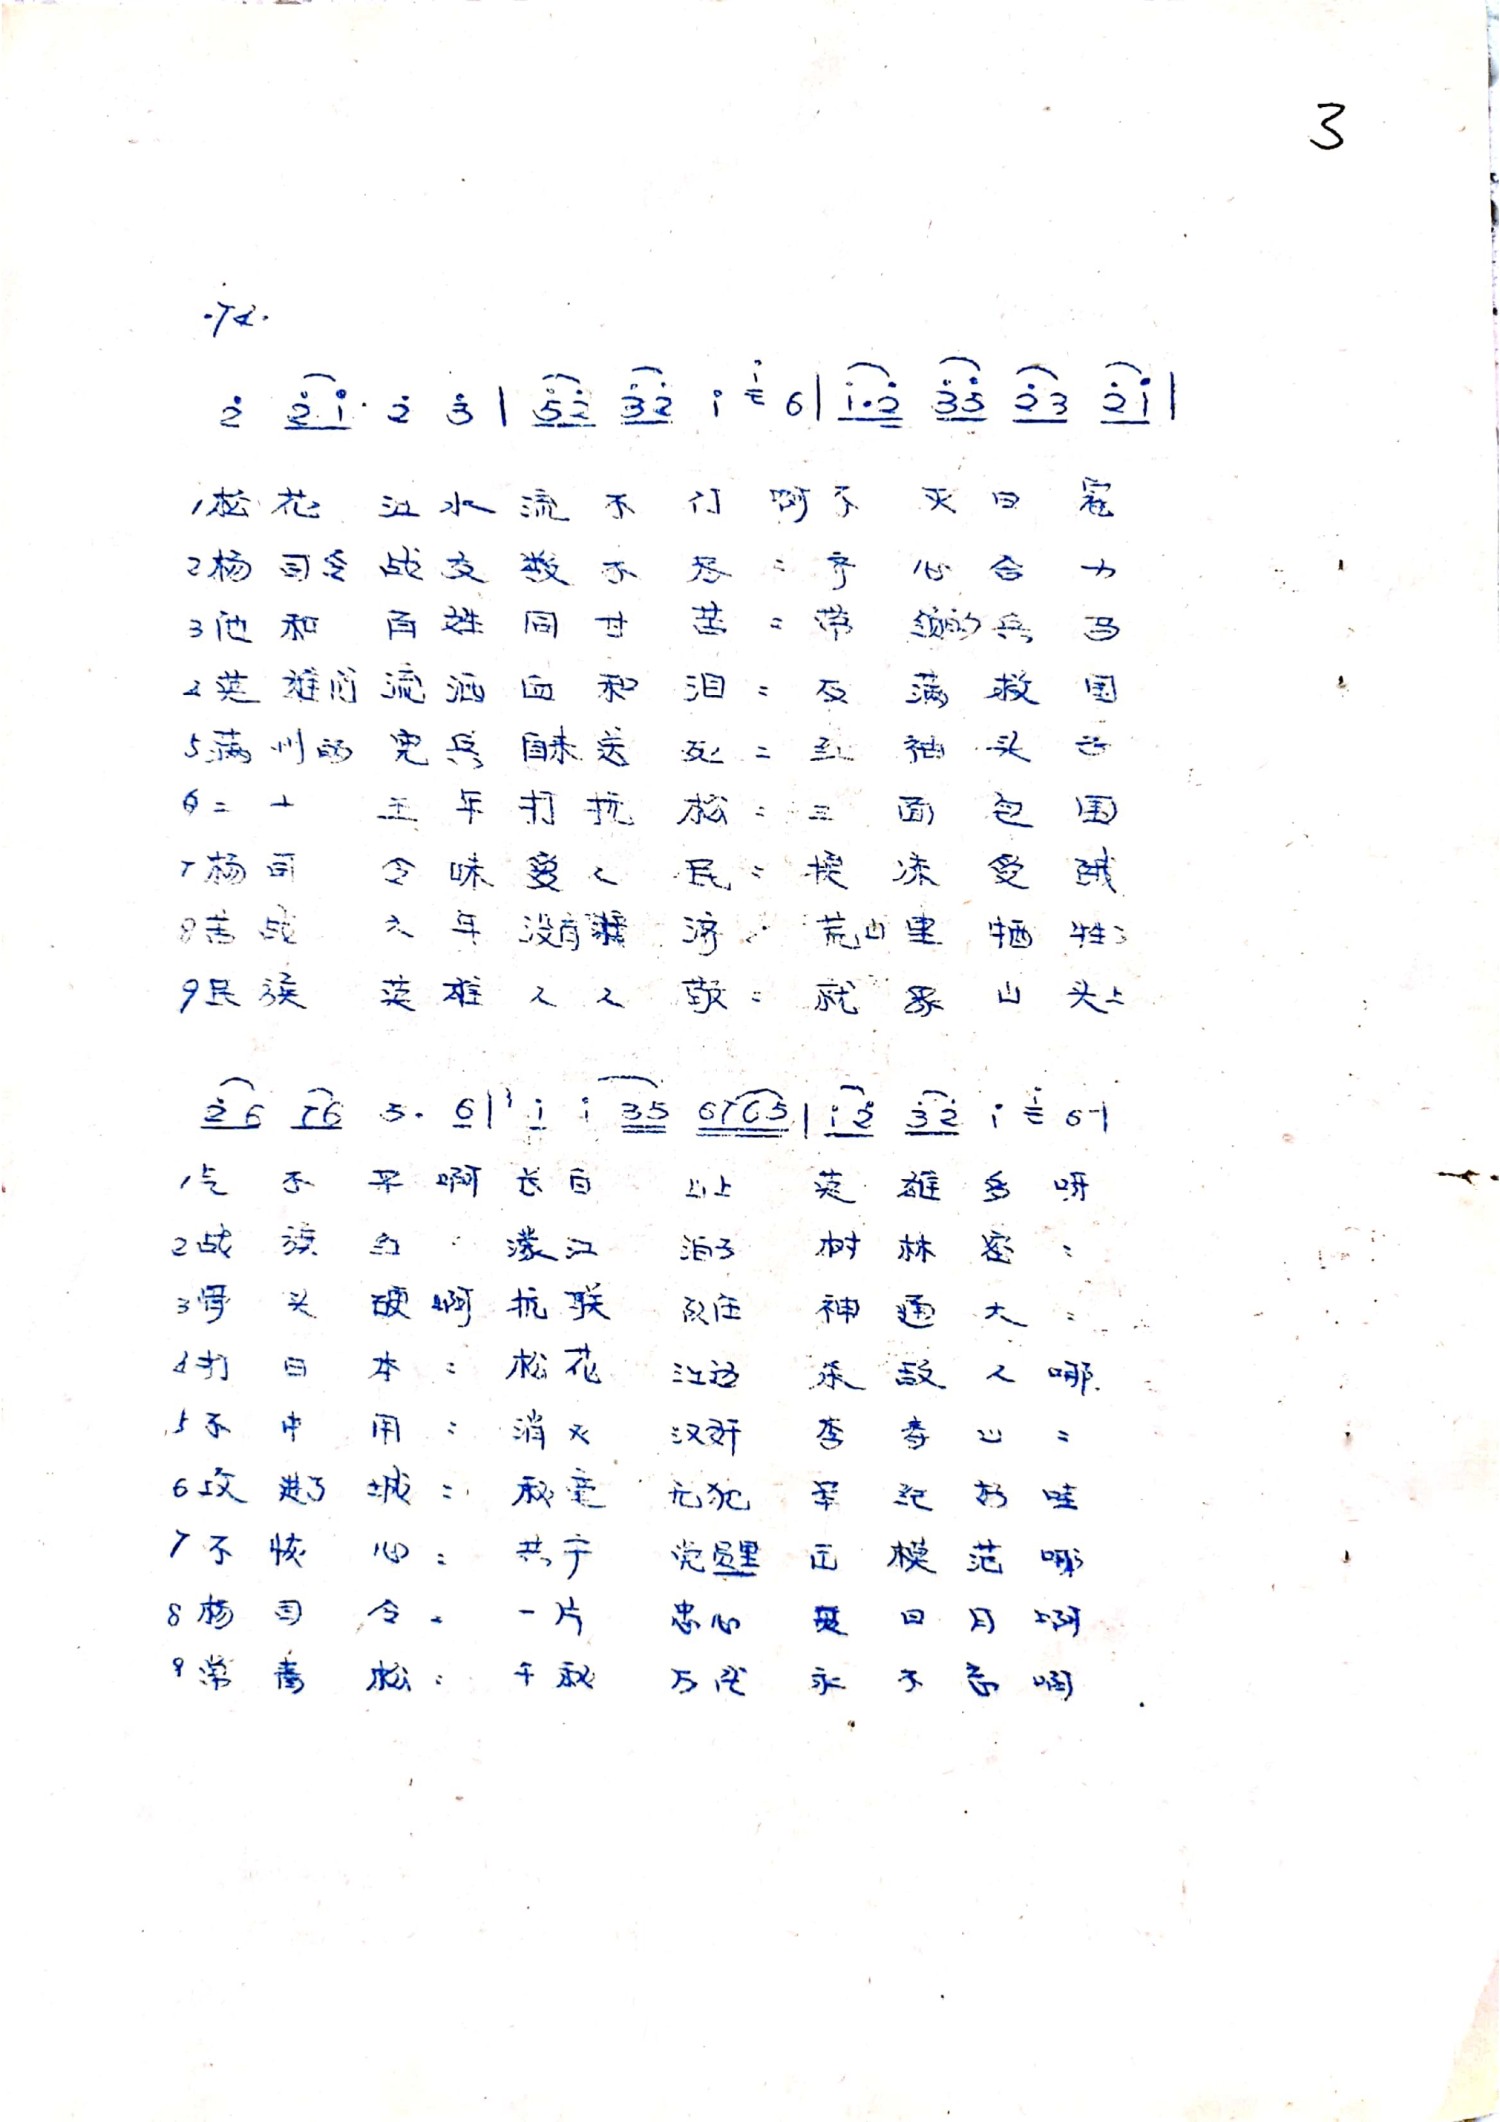 3
·74·
2̇ 2̇1̇· 2̇ 3̇ | 5̇2̇ 3̇2̇ 1̇ 1̇ 6 | 1̇·2̇ 3̇5̇ 2̇3 2̇1̇ |
1松花江水流不仃啊不灭日寇
2杨司令战交数不尽:齐心合力
3他和百姓同甘苦:带领的兵马
4英雄们流洒血和泪:反满救国
5满州的宪兵自来送死:到神头
6二十五年打抚松:三面包围
7杨司令味爱人民:挨冻受饿
8苦战六年没有济:荒山里牺牲了
9民族英雄人人敬:就象山头上
2̇6 76 5· 6 | 1̇ 1̇ 35 6765 | 1̇2̇ 3̇2̇ 1̇ 1̇ 6-|
1气不平啊长白山上英雄多呀
2战旗红:濛江泊子树林密:
3骨头硬啊抗联队伍神通大:
4打日本:松花江边杀敌人哪
5不中用:消灭汉奸李寿山:
6攻进了城:秋毫无犯军纪好哇
7不恢心:共产党员里正模范哪
8杨司令:一片忠心贯日月啊
9常青松:千秋万代永不忘啊